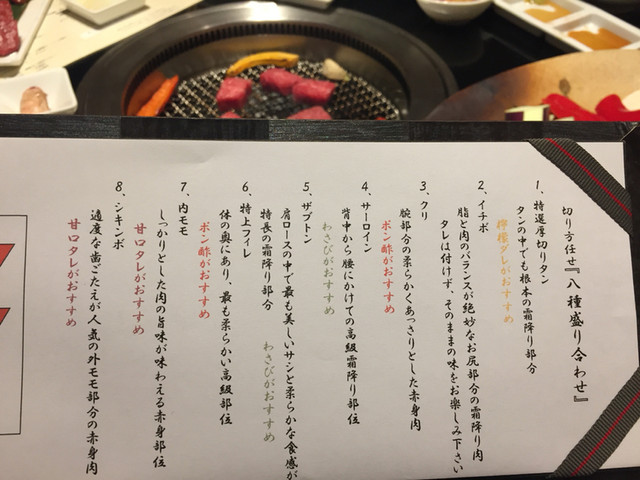 切り方任せ『八種盛り合わせ』
1、特選厚切りタン
タンの中でも根本の霜降り部分
檸檬ダレがおすすめ
2、イチボ
脂と肉のバランスが絶妙なお尻部分の霜降り肉
タレは付けず、そのままの味をお楽しみ下さい
3、クリ
腕部分の柔らかくあっさりとした赤身肉
ポン酢がおすすめ
4、サーロイン
背中から腰にかけての高級霜降り部位
わさびがおすすめ
5、ザブトン
肩ロースの中で最も美しいサシと柔らかな食感が
特長の霜降り部分 わさびがおすすめ
6、特上フィレ
体の奥にあり、最も柔らかい高級部位
ポン酢がおすすめ
7、内モモ
しっかりとした肉の旨味が味わえる赤身部位
甘口タレがおすすめ
8、シキンボ
適度な歯ごたえが人気の外モモ部分の赤身肉
甘口タレがおすすめ